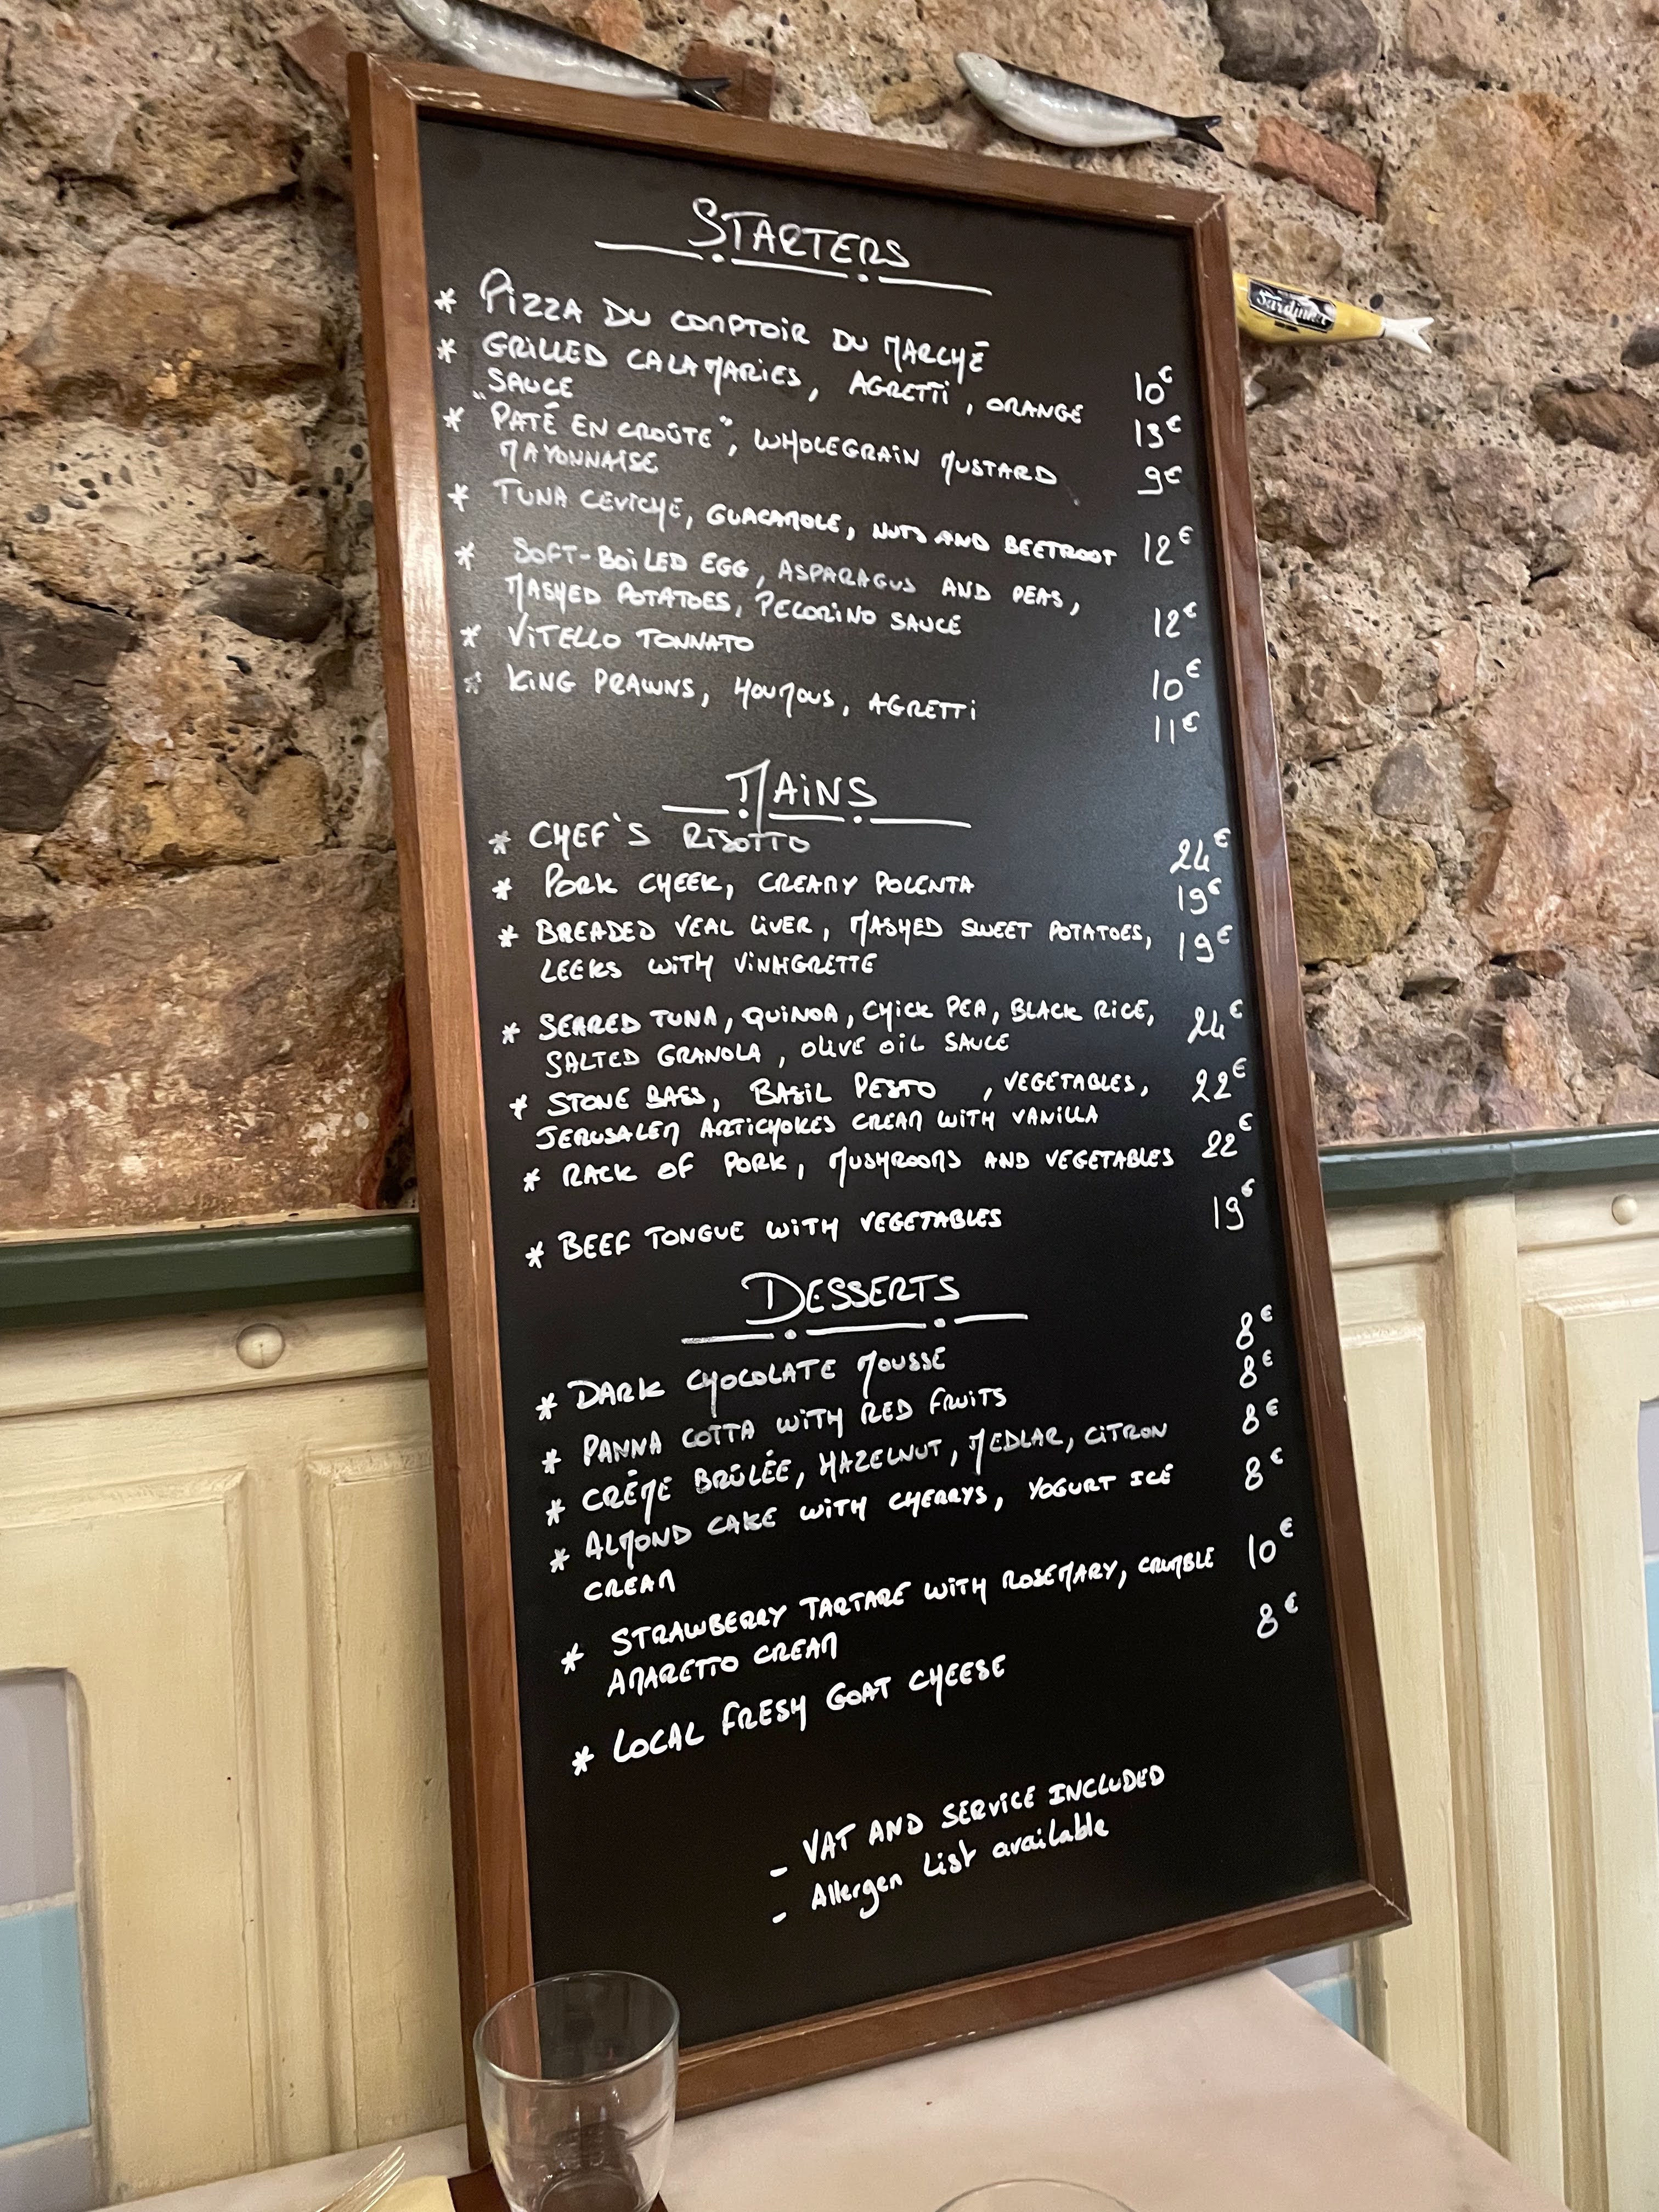 STARTERS
* PIZZA DU COMPTOIR DU MARCHÉ 10€
* GRILLED CALAMARIES, AGRETTI, ORANGE
SAUCE 13€
* "PATÉ EN CROÛTE", WHOLEGRAIN MUSTARD
MAYONNAISE 9€
* TUNA CEVICHE, GUACAMOLE, NUTS AND BEETROOT 12€
* SOFT-BOILED EGG, ASPARAGUS AND PEAS,
MASHED POTATOES, PECORINO SAUCE 12€
* VITELLO TONNATO 10€
* KING PRAWNS, HOUMOUS, AGRETTI 11€
MAINS
* CHEF'S RISOTTO 24€
* PORK CHEEK, CREAMY POLENTA 19€
* BREADED VEAL LIVER, MASHED SWEET POTATOES, 19€
LEEKS WITH VINAIGRETTE
* SEARED TUNA, QUINOA, CHICK PEA, BLACK RICE, 24€
SALTED GRANOLA, OLIVE OIL SAUCE
* STONE BASS, BASIL PESTO, VEGETABLES, 22€
JERUSALEM ARTICHOKES CREAM WITH VANILLA
* RACK OF PORK, MUSHROOMS AND VEGETABLES 22€
* BEEF TONGUE WITH VEGETABLES 19€
DESSERTS
* DARK CHOCOLATE MOUSSE 8€
* PANNA COTTA WITH RED FRUITS 8€
* CRÊME BRÛLÉE, HAZELNUT, MEDLAR, CITRON 8€
* ALMOND CAKE WITH CHERRYS, YOGURT ICE 8€
CREAM
* STRAWBERRY TARTARE WITH ROSEMARY, CRUMBLE 10€
AMARETTO CREAM
* LOCAL FRESH GOAT CHEESE 8€
- VAT AND SERVICE INCLUDED
- Allergen List available
Sardines